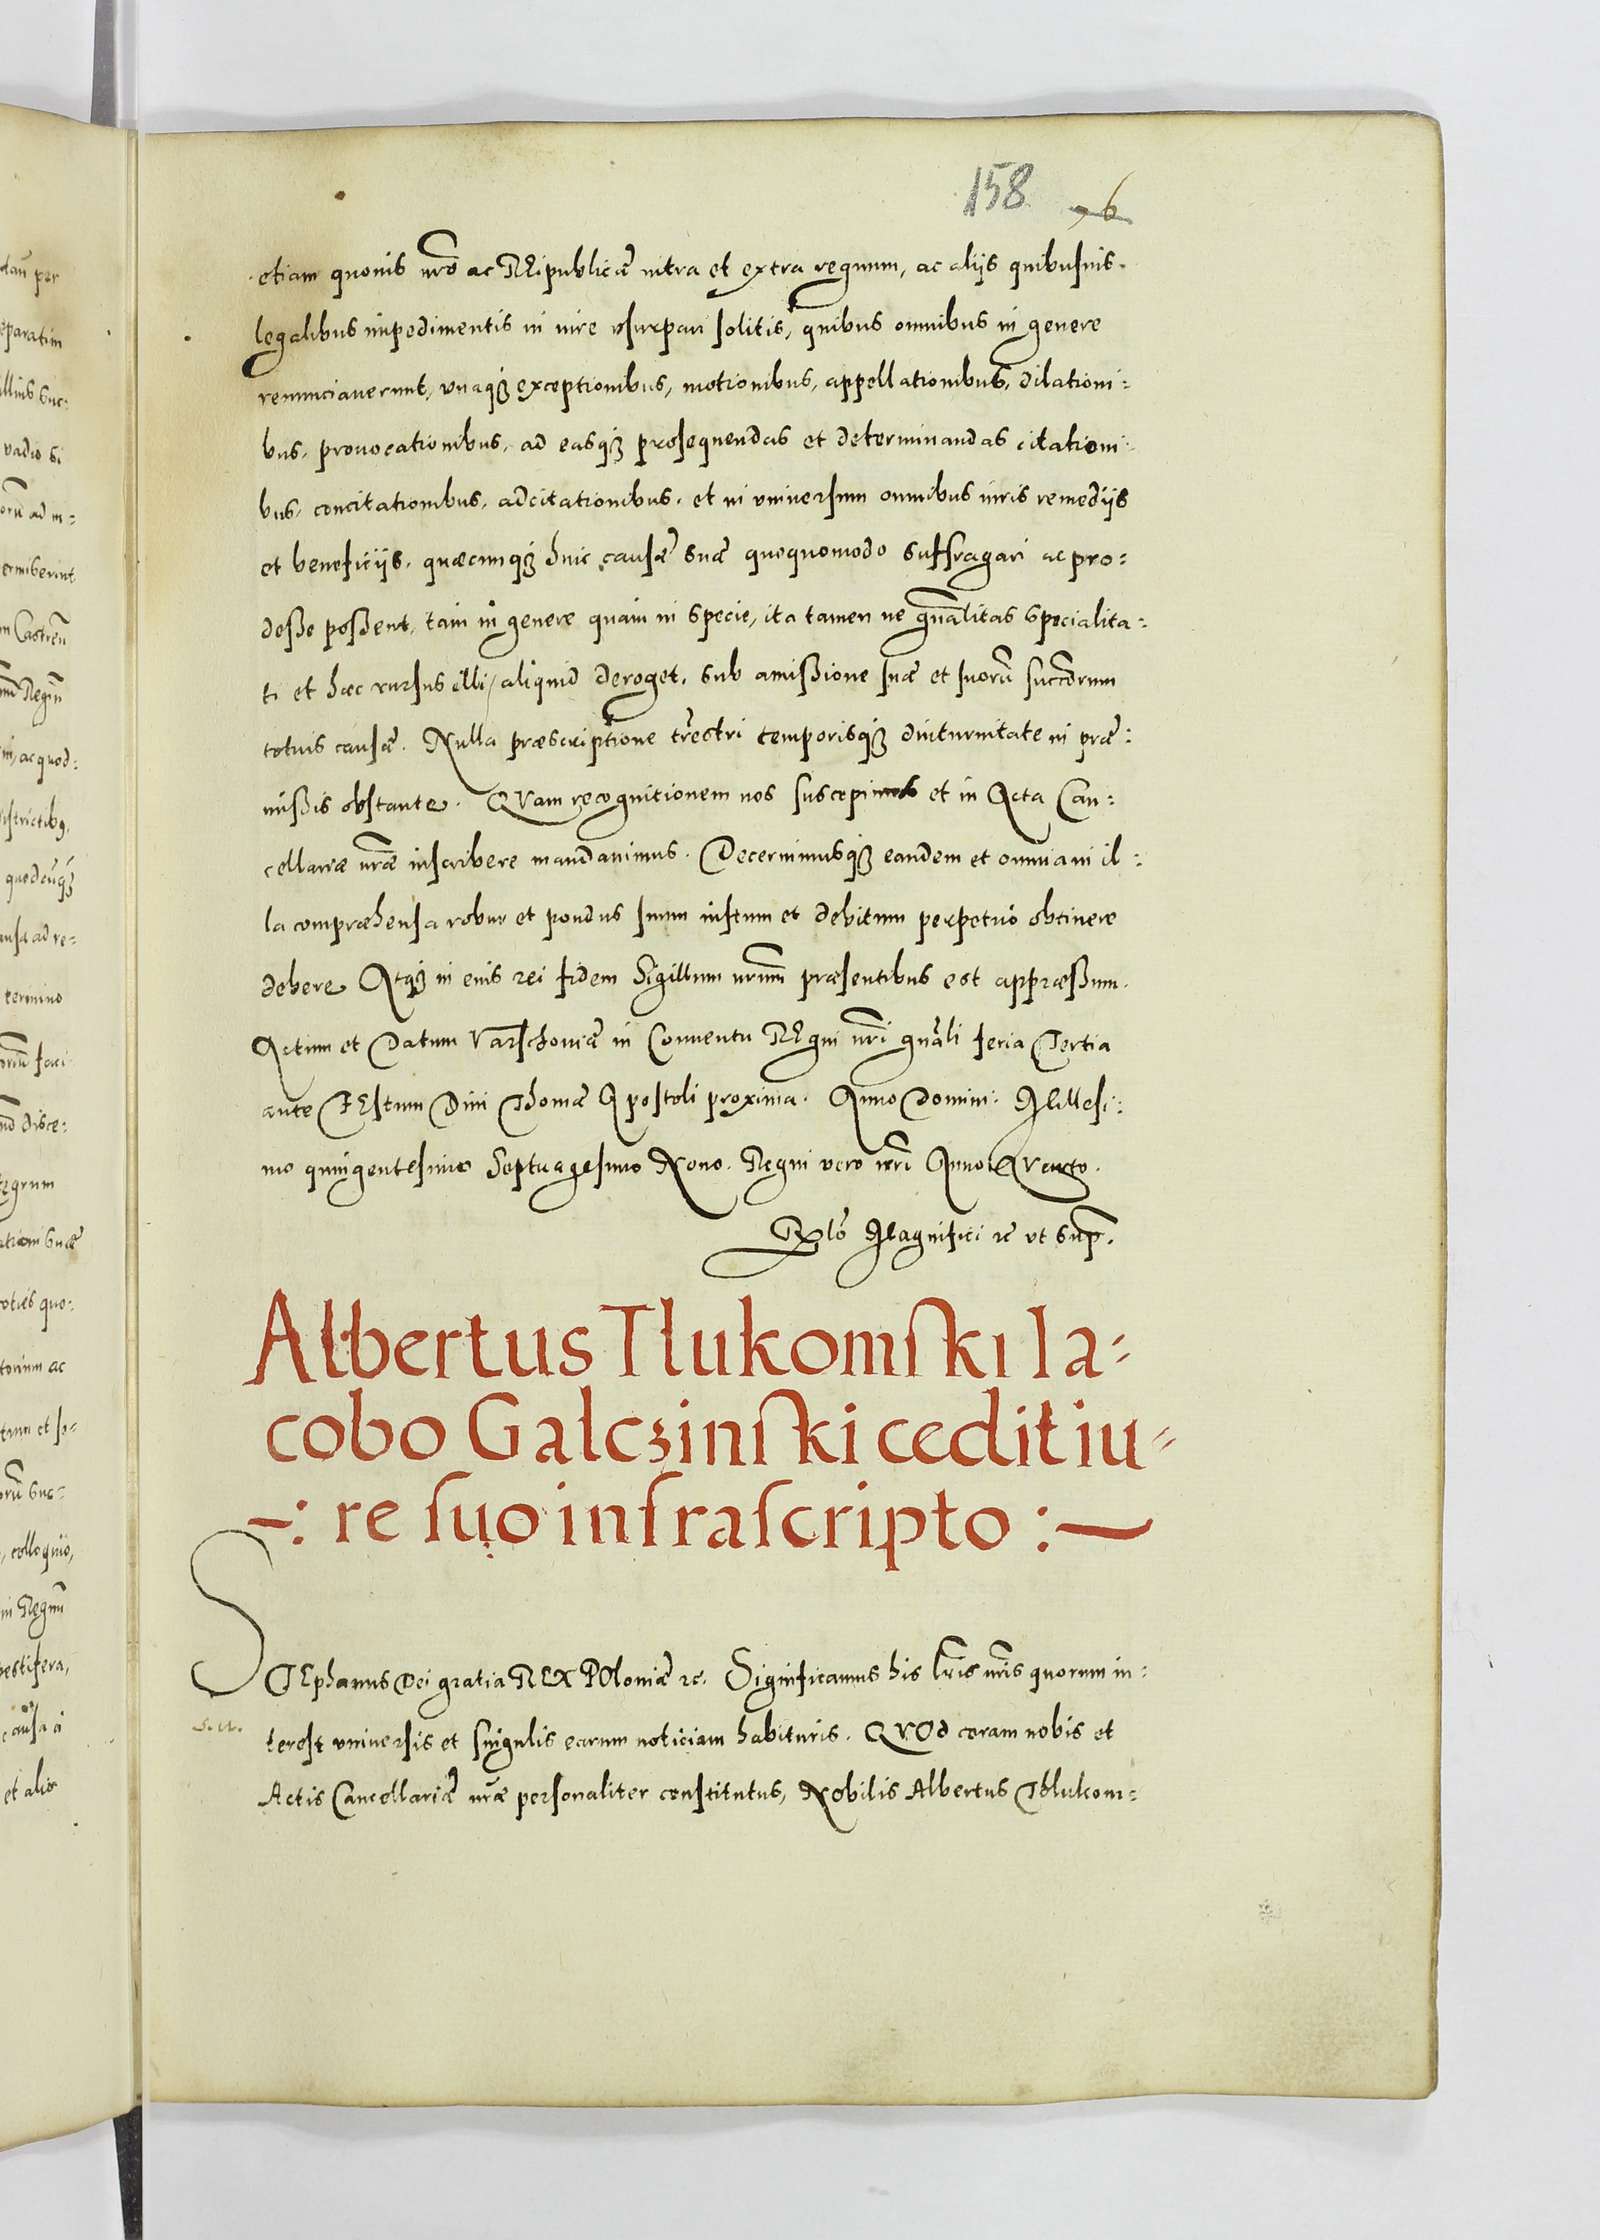 158 76
etiam quouis nrõ ac REipublicæ intra et extra regnum, ac alijs quibusuis
legalibus impedimentis in iure vsurpari solitis, quibus omnibus in genere
renunciauerunt, vnaq₃ exceptionibus, motionibus, appellationibus, dilationi:
bus, prouocationibus, ad easq₃ prosequendas et determinandas citationi:
bus, concitationibus, adcitationibus, et in vniuersum omnibus iuris remedijs
et beneficijs, quæcunq₃ huic causæ suæ quoquomodo suffragari ac pro:
desse possent, tam in genere quam in specie, ita tamen ne gnãlitas specialita:
ti et hæc rursus illi, aliquid deroget, sub amissione suæ et suorũ succõrum
totius causæ. Nulla præscriptione trẽstri temporisq₃ diuturnitate in præ:
missis obstante. QVam recognitionem nos suscepimus et in Acta Can:
cellariæ nrãe inscribere mandauimus. Decernimusq₃ eandem et omnia in il:
la compræhensa robur et pondus suum iustum et debitum perpetuo obtinere
debere. Atq₃ in eius rei fidem Sigillum nrũm præsentibus est appræssum.
Actum et Datum Varschouiæ in Conuentu REgni nrĩ gnãli feria Tertia
ante FEstum Diui Thomæ Apostoli proxima. Anno Domini Millesi:
mo quingentesimo Septuagesimo Nono. Regni vero nrĩ Anno QVarto.
Rlõ Magnifici ꝛc vt sup̃.
Albertus Tlukomski Ia-
cobo Galczinski cedit iu-
-: re suo infrascripto :-
STEphanus Dei gratia REX POloniæ ꝛc. Significamus his lrĩs nrĩs quorum in:
terest vniuersis et singulis earum noticiam habituris. QVOd coram nobis et
Actis Cancellariæ nrãe personaliter constitutus, Nobilis Albertus Thlukom: